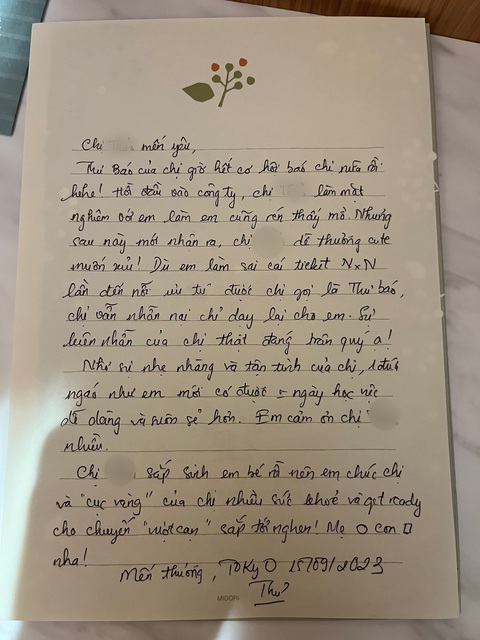 Chị mến yêu,
Thư Báo của chị giờ hết cơ hội báo chị nữa rồi
hehe! Hồi đầu vào công ty, chị làm mặt
nghiêm với em làm em cũng rén thấy mồ. Nhưng
sau này mới nhận ra, chị dễ thương cute
muốn xỉu! Dù em làm sai cái ticket N×N
lần đến nỗi ưu tư được chị gọi là Thư báo,
chị vẫn nhẫn nại chỉ dạy lại cho em. Sự
kiên nhẫn của chị thật đáng trân quý ạ!
Nhờ sự nhẹ nhàng và tận tình của chị, 1 đứa
ngáo như em mới có được ngày học việc
dễ dàng và suôn sẻ hơn. Em cảm ơn chị
nhiều.
Chị sắp sinh em bé rồi nên em chúc chị
và "cục vàng" của chị nhiều sức khoẻ và get ready
cho chuyến "vượt cạn" sắp tới nghen! Mẹ O con □
nha!
Mến thương, TOKYO 15/09/2023
Thư
MIDORI